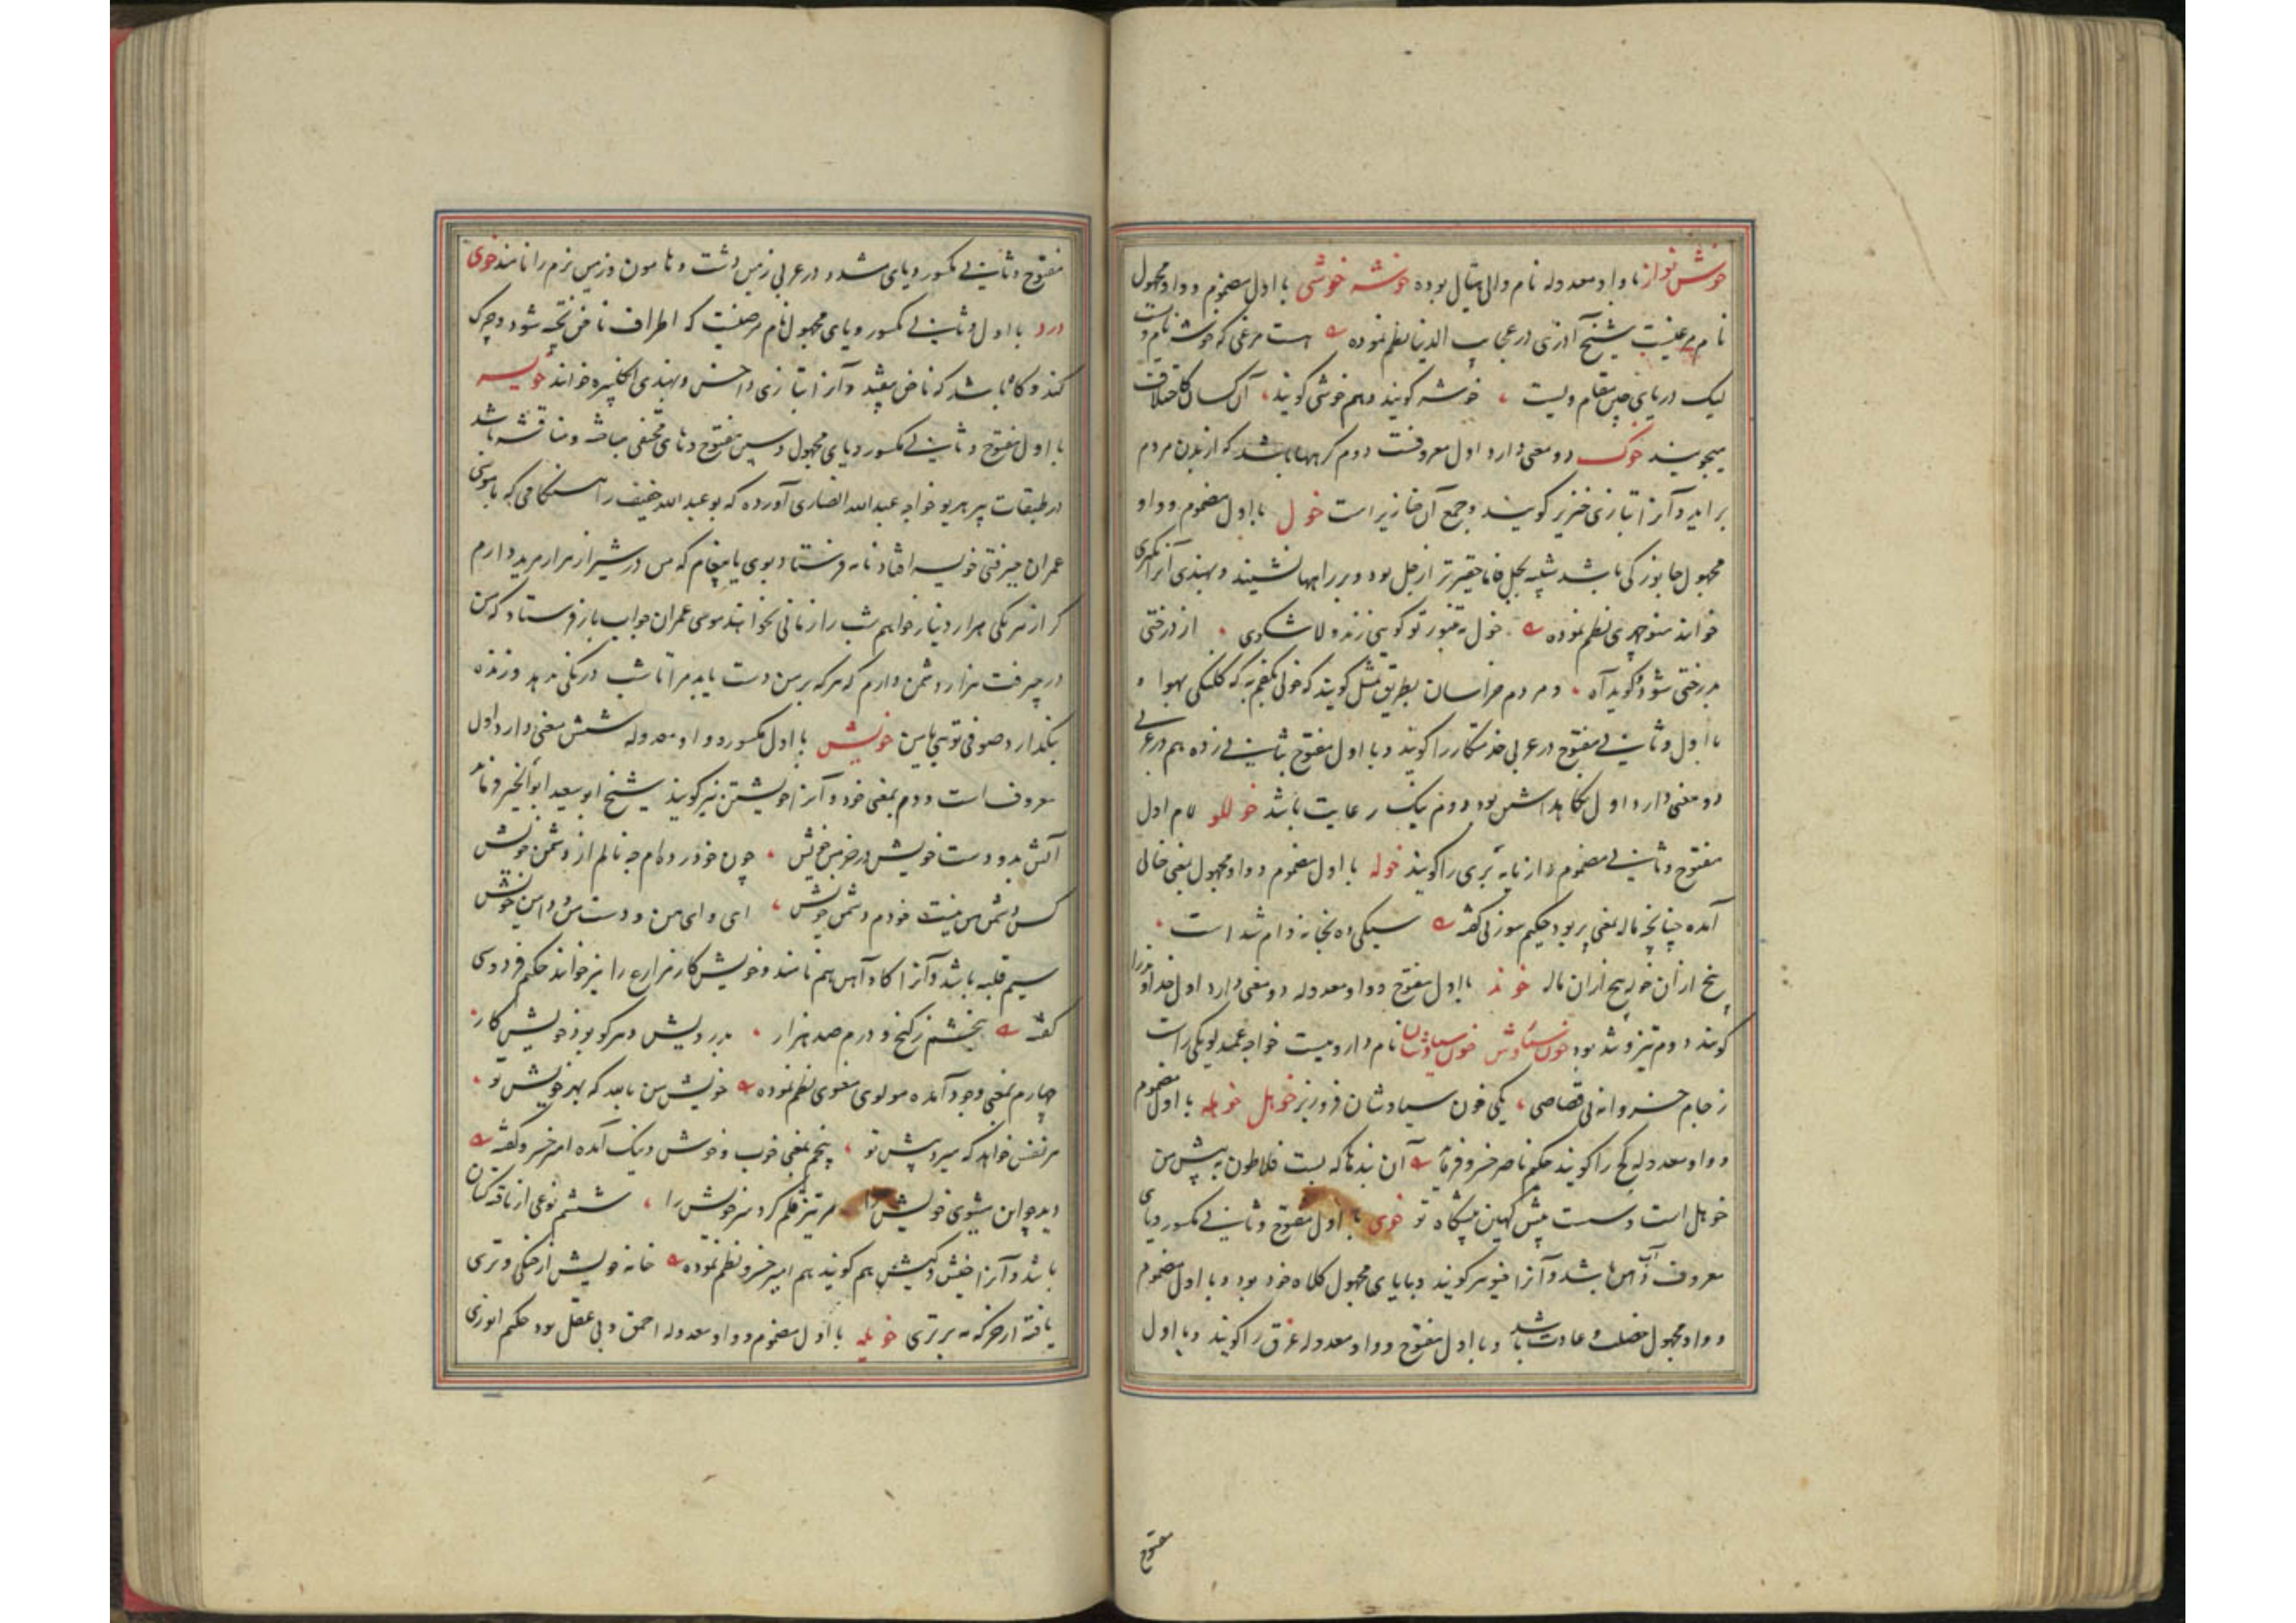 خوش نواز با واو معدوله نام والی هیتال بوده خوشه خوشی با اول مضموم و واو مجهول
نام مرغیست شیخ آذری در عجایب الدنیا نظم نموده هست مرغی که خوشه نام ویست
لیک دریای چین مقام ویست خوشه گویند و هم خوشی گویند آن کسان کاختلاف
میجویند خوک دو معنی دارد اول معروفست دوم کرههاباشد که از بدن مردم
براید و آنرا بتازی خنزیر گویند و جمع آن خنازیر است خول با اول مضموم و واو
مجهول جانورکی باشد شبیه بجل فاما حقیرتر از جل بود و بر راهها نشیند و بهندی آنرا
خوانند منوچهری نظم نموده خول طنبور تو گویی زند و لاسکوی از درختی
بدرختی شود و گوید آه و مردم خراسان بطریق مثل گویند که خولی بکفم به که کلنگی بهوا و
با اول و ثانی مفتوح در عربی خدمتکار را گویند و با اول مفتوح بثانی زده هم در عربی
دو معنی دارد اول نگاهداشتن بود دوم نیک رعایت باشد خوللو لام اول
مفتوح و ثانی مضموم رازیانه بری را گویند خوله با اول مضموم و واو مجهول بمعنی خالی
آمده چنانچه ماله بمعنی پر بود حکیم سوزنی گفته سیکی ده بخانه وام شد است
پنج ازان خوله پنج ازان ماله خوند با اول مفتوح و واو معدوله دو معنی دارد اول خداوند را
گویند دوم تیز و تند بود خون سیاوش خون سیاوشان نام داروییست خواجه عمید لویکی راست
ز جام خسروانه بی قصاصی یکی خون سیاوشان فرو ریز خوهل خوهله با اول مضموم
و واو معدوله کج را گویند حکیم ناصر خسرو فرماید آن بندها که بست فلاطون به پیش من
خوهل است و سست پیش کهین پیشگاه تو خوی با اول مفتوح و ثانی مکسور و یای
معروف آب دهن باشد و آنرا خیو نیز گویند و با یای مجهول کلاه خود بود و با اول مضموم
و واو مجهول خصلت و عادت باشد و با اول مفتوح و واو معدوله عرق را گویند و با اول
مفتوح
مفتوح و ثانی مکسور و یای مشدد در عربی زمین دشت و هامون و زمین نرم را نامند خوی
درد با اول و ثانی مکسور و یای مجهول نام مرضیست که اطراف ناخن پخته شود و چرک
کند و گاه باشد که ناخن بیفتد و آنرا بتازی داحس و بهندی خوانند خویسه
با اول مفتوح و ثانی مکسور و یای مجهول و سین مفتوح و های مختفی مباحثه و مناقشه باشد
در طبقات پیر هریو خواجه عبدالله انصاری آورده که بو عبدالله خفیف را هنگامی که با موسی
عمران جیرفتی خویسه افتاد نامه فرستاد بوی با پیغام که من در شیراز هزار مرید دارم
که از هر یکی هزار دینار خواهم شب را زمانی نخواهند موسی عمران جواب باز فرستاد که من
در جیرفت هزار دشمن دارم که هر که بر من دست یابد مرا تا شب درنگی ندهد و زنده
نگذارد صوفی تویی یا من خویش با اول مکسور و واو معدوله شش معنی دارد اول
معروف است دوم بمعنی خود و آنرا خویشتن نیز گویند شیخ ابو سعید ابو الخیر فرماید
آتش بدو دست خویش در خرمن خویش چون خود زده ام چه نالم از دشمن خویش
کس دشمن من نیست خودم دشمن خویش ای وای من و دست من و دامن خویش
سیم قلبه باشد و آنرا گاو آهن هم نامند و خویش کار مزارع را نیز خوانند حکیم فردوسی
گفته ببخشم ز گنج و درم صد هزار بدرویش و هر کو بود خویش کار
چهارم بمعنی وجود آمده مولوی معنوی نظم نموده خویش من بالله که بهر خویش تو
هر نفس خواهد که میرد پیش تو پنجم بمعنی خوب و خوش و نیک آمده امیر خسرو گفته
دید چو این شیوی خویش را سر تیز قلم کرد سر خویش را ششم نوعی از بافته کتان
باشد و آنرا خیش و کیش هم گویند هم امیر خسرو نظم نموده خانه خویش از خنکی و تری
یافته از خرگه مه برتری خویله با اول مضموم و واو معدوله احمق و بی عقل بود حکیم انوری